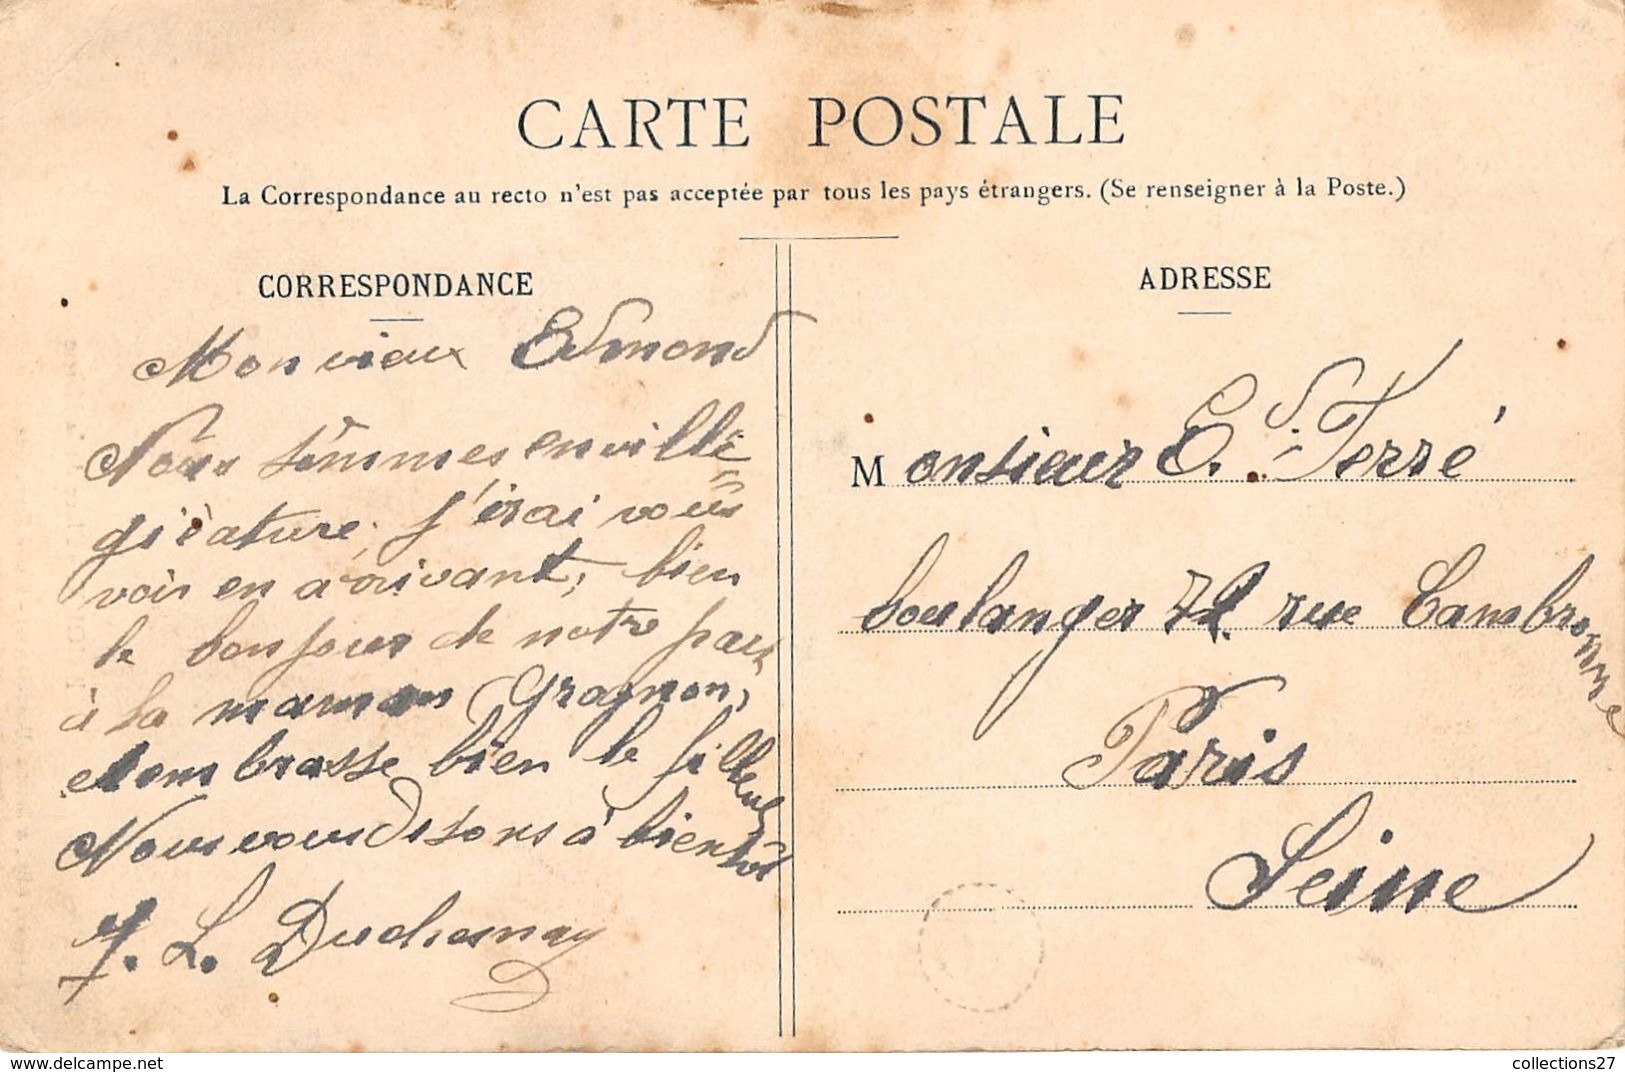 CARTE POSTALE
La Correspondance au recto n'est pas acceptée par tous les pays étrangers. (Se renseigner à la Poste.)
CORRESPONDANCE
Mon vieux Edmond
Nous sommes en ville
giérature, j'irai vous
voir en arrivant, bien
le bonjour de notre part
à la maman Gragnon,
et embrasse bien le filleul
Nous vous disons à bientôt
L. Duchesnay
ADRESSE
Monsieur E. Ferré
boulanger 72 rue Cambronne
Paris
Seine
www.delcampe.net
collections27